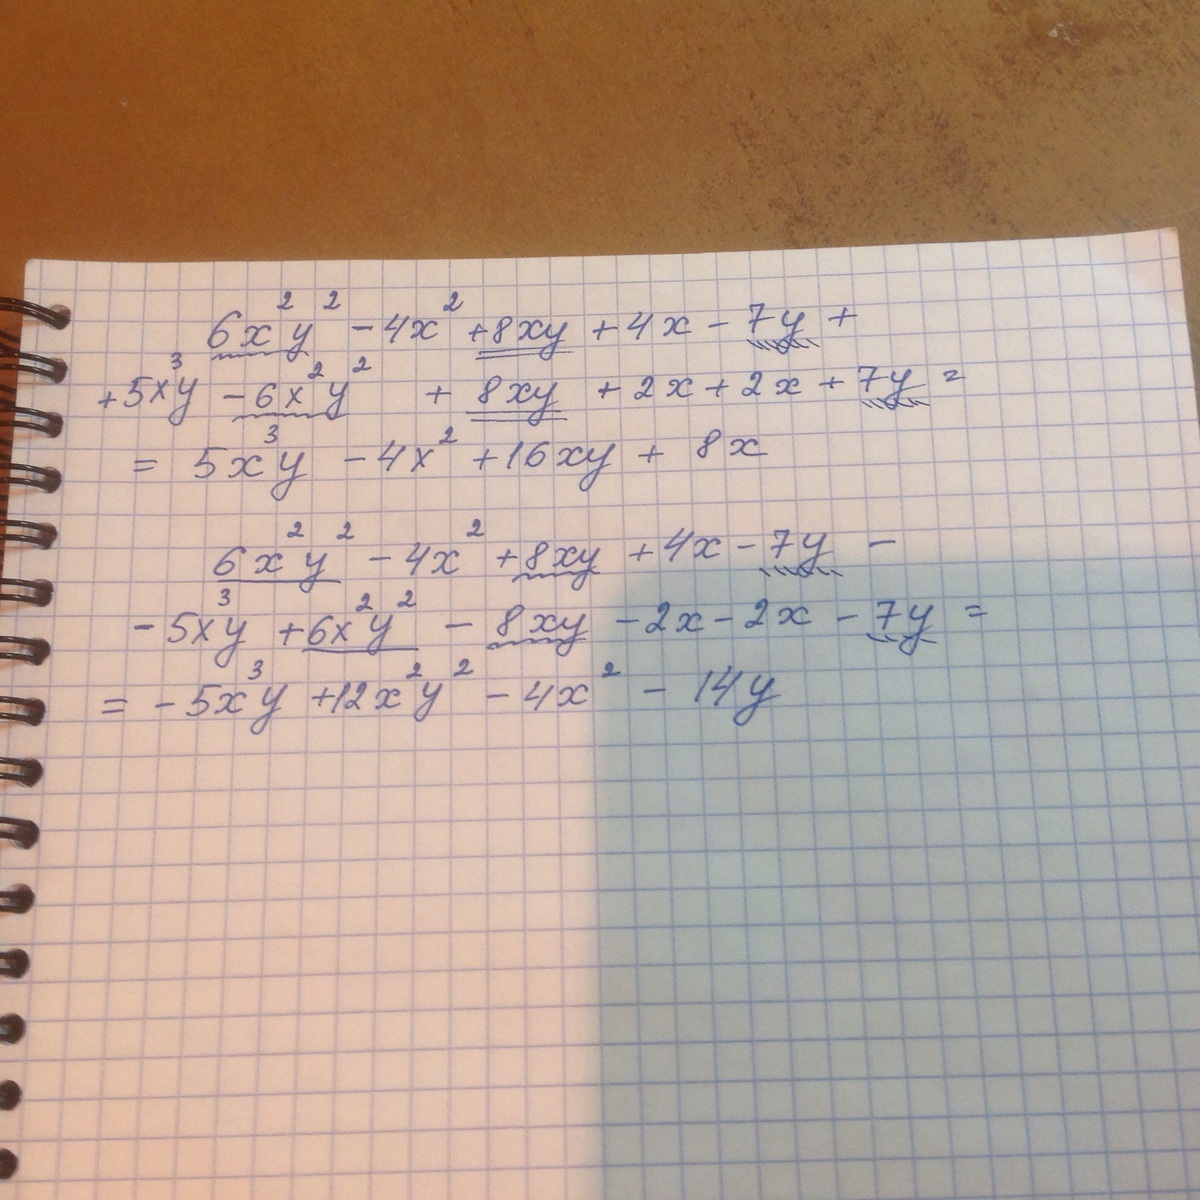 6x²y² - 4x² + 8xy + 4x - 7y +
+ 5x³y - 6x²y² + 8xy + 2x + 2x + 7y =
= 5x³y - 4x² + 16xy + 8x
6x²y² - 4x² + 8xy + 4x - 7y -
- 5x³y + 6x²y² - 8xy - 2x - 2x - 7y =
= - 5x³y + 12x²y² - 4x² - 14y